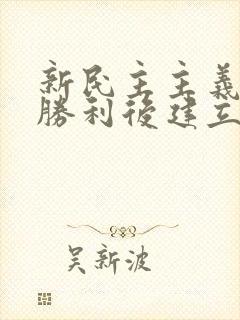 新民主主義
勝利後建立
吴新波